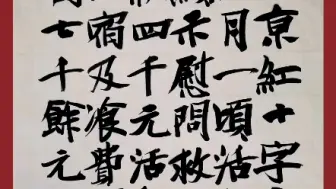 京紅十字
月一頃活
示慰問救
四千元活
宿及飡費
七千餘元